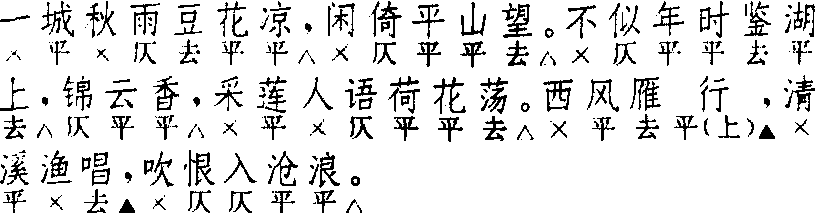 一城秋雨豆花凉，闲倚平山望。不似年时鉴湖
×平×仄去平平△×仄平平去△×仄平平去平
上，锦云香，采莲人语荷花荡。西风雁行，清
去△仄平平△×平×仄平平去△×平去平(上)▲×
溪渔唱，吹恨入沧浪。
平×去▲×仄仄平平△